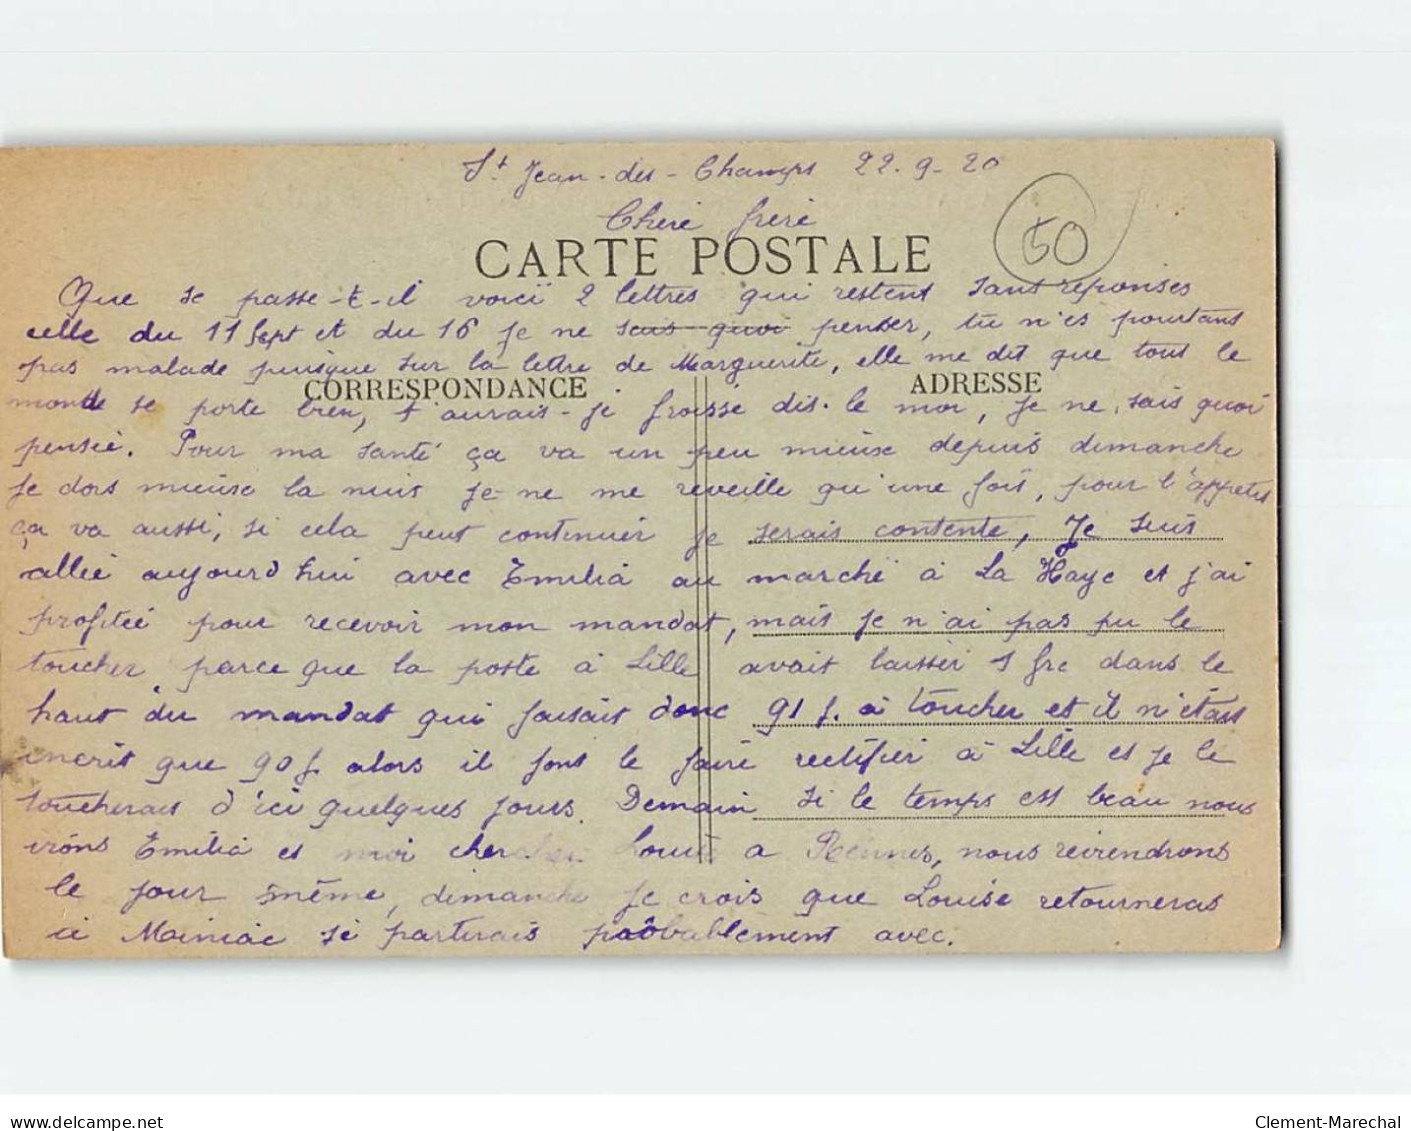 St Jean-des-Champs 22.9.20
Cheré freré
50
CARTE POSTALE
Que se passe-t-il voici 2 lettres qui restent sans reponses
celle du 11 Sept et du 16 je ne sais quoi penser, tu n'es pourtant
pas malade puisque sur la lettre de Marguerite, elle me dit que tout le
CORRESPONDANCE
ADRESSE
monde se porte bien, t'aurais-je froisse dis-le moi, je ne sais quoi
pensée. Pour ma santé ça va un peu mieuse depuis dimanche
je dors mieuse la nuit je ne me reveille qu'une fois, pour l'appetit
ça va aussi, si cela peut continuer je serais contente, Je suis
allée aujourd'hui avec Emilia au marché à La Haye et j'ai
profitée pour recevoir mon mandat, mais je n'ai pas pu le
toucher parce que la poste à Lille avait laisser 1 frc dans le
haut du mandat qui faisait donc 91 f. à toucher et il n'etait
inscrit que 90 f alors il font le faire rectifier à Lille et je le
toucherais d'ici quelques jours. Demain si le temps est beau nous
irons Emilia et moi chercher Louise a Rennes, nous reviendrons
le jour même, dimanche je crois que Louise retourneras
à Miniac je partirais probablement avec.
delcampe.net
Clement-Marechal